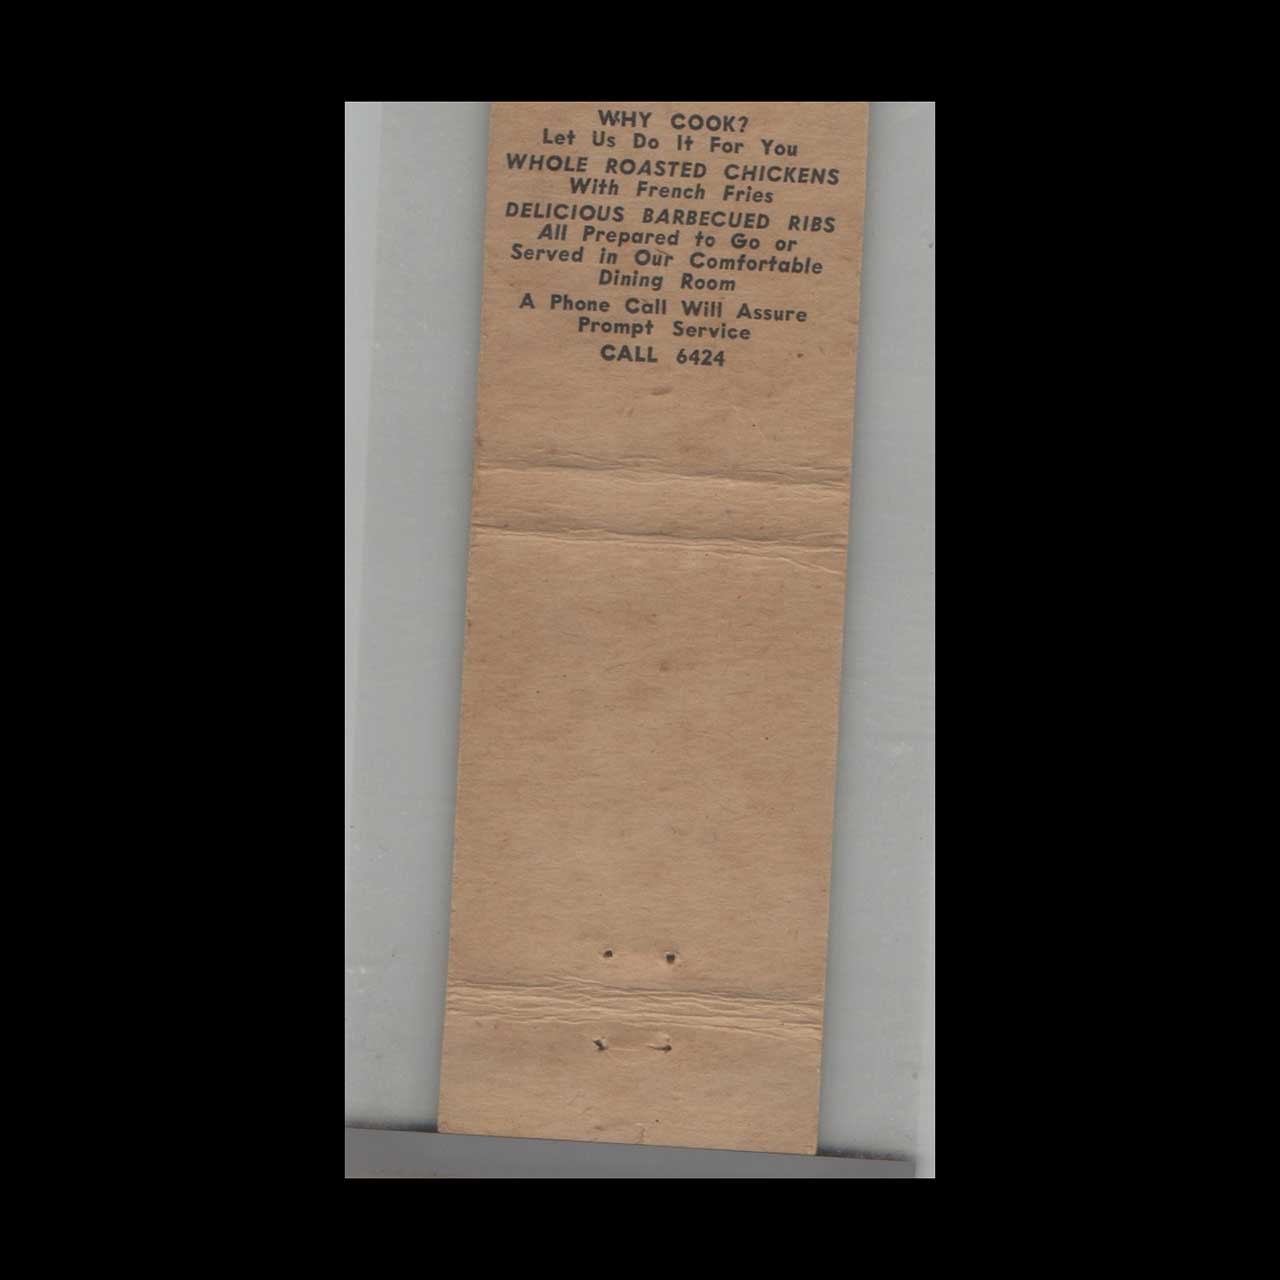 WHY COOK?
Let Us Do It For You
WHOLE ROASTED CHICKENS
With French Fries
DELICIOUS BARBECUED RIBS
All Prepared to Go or
Served in Our Comfortable
Dining Room
A Phone Call Will Assure
Prompt Service
CALL 6424